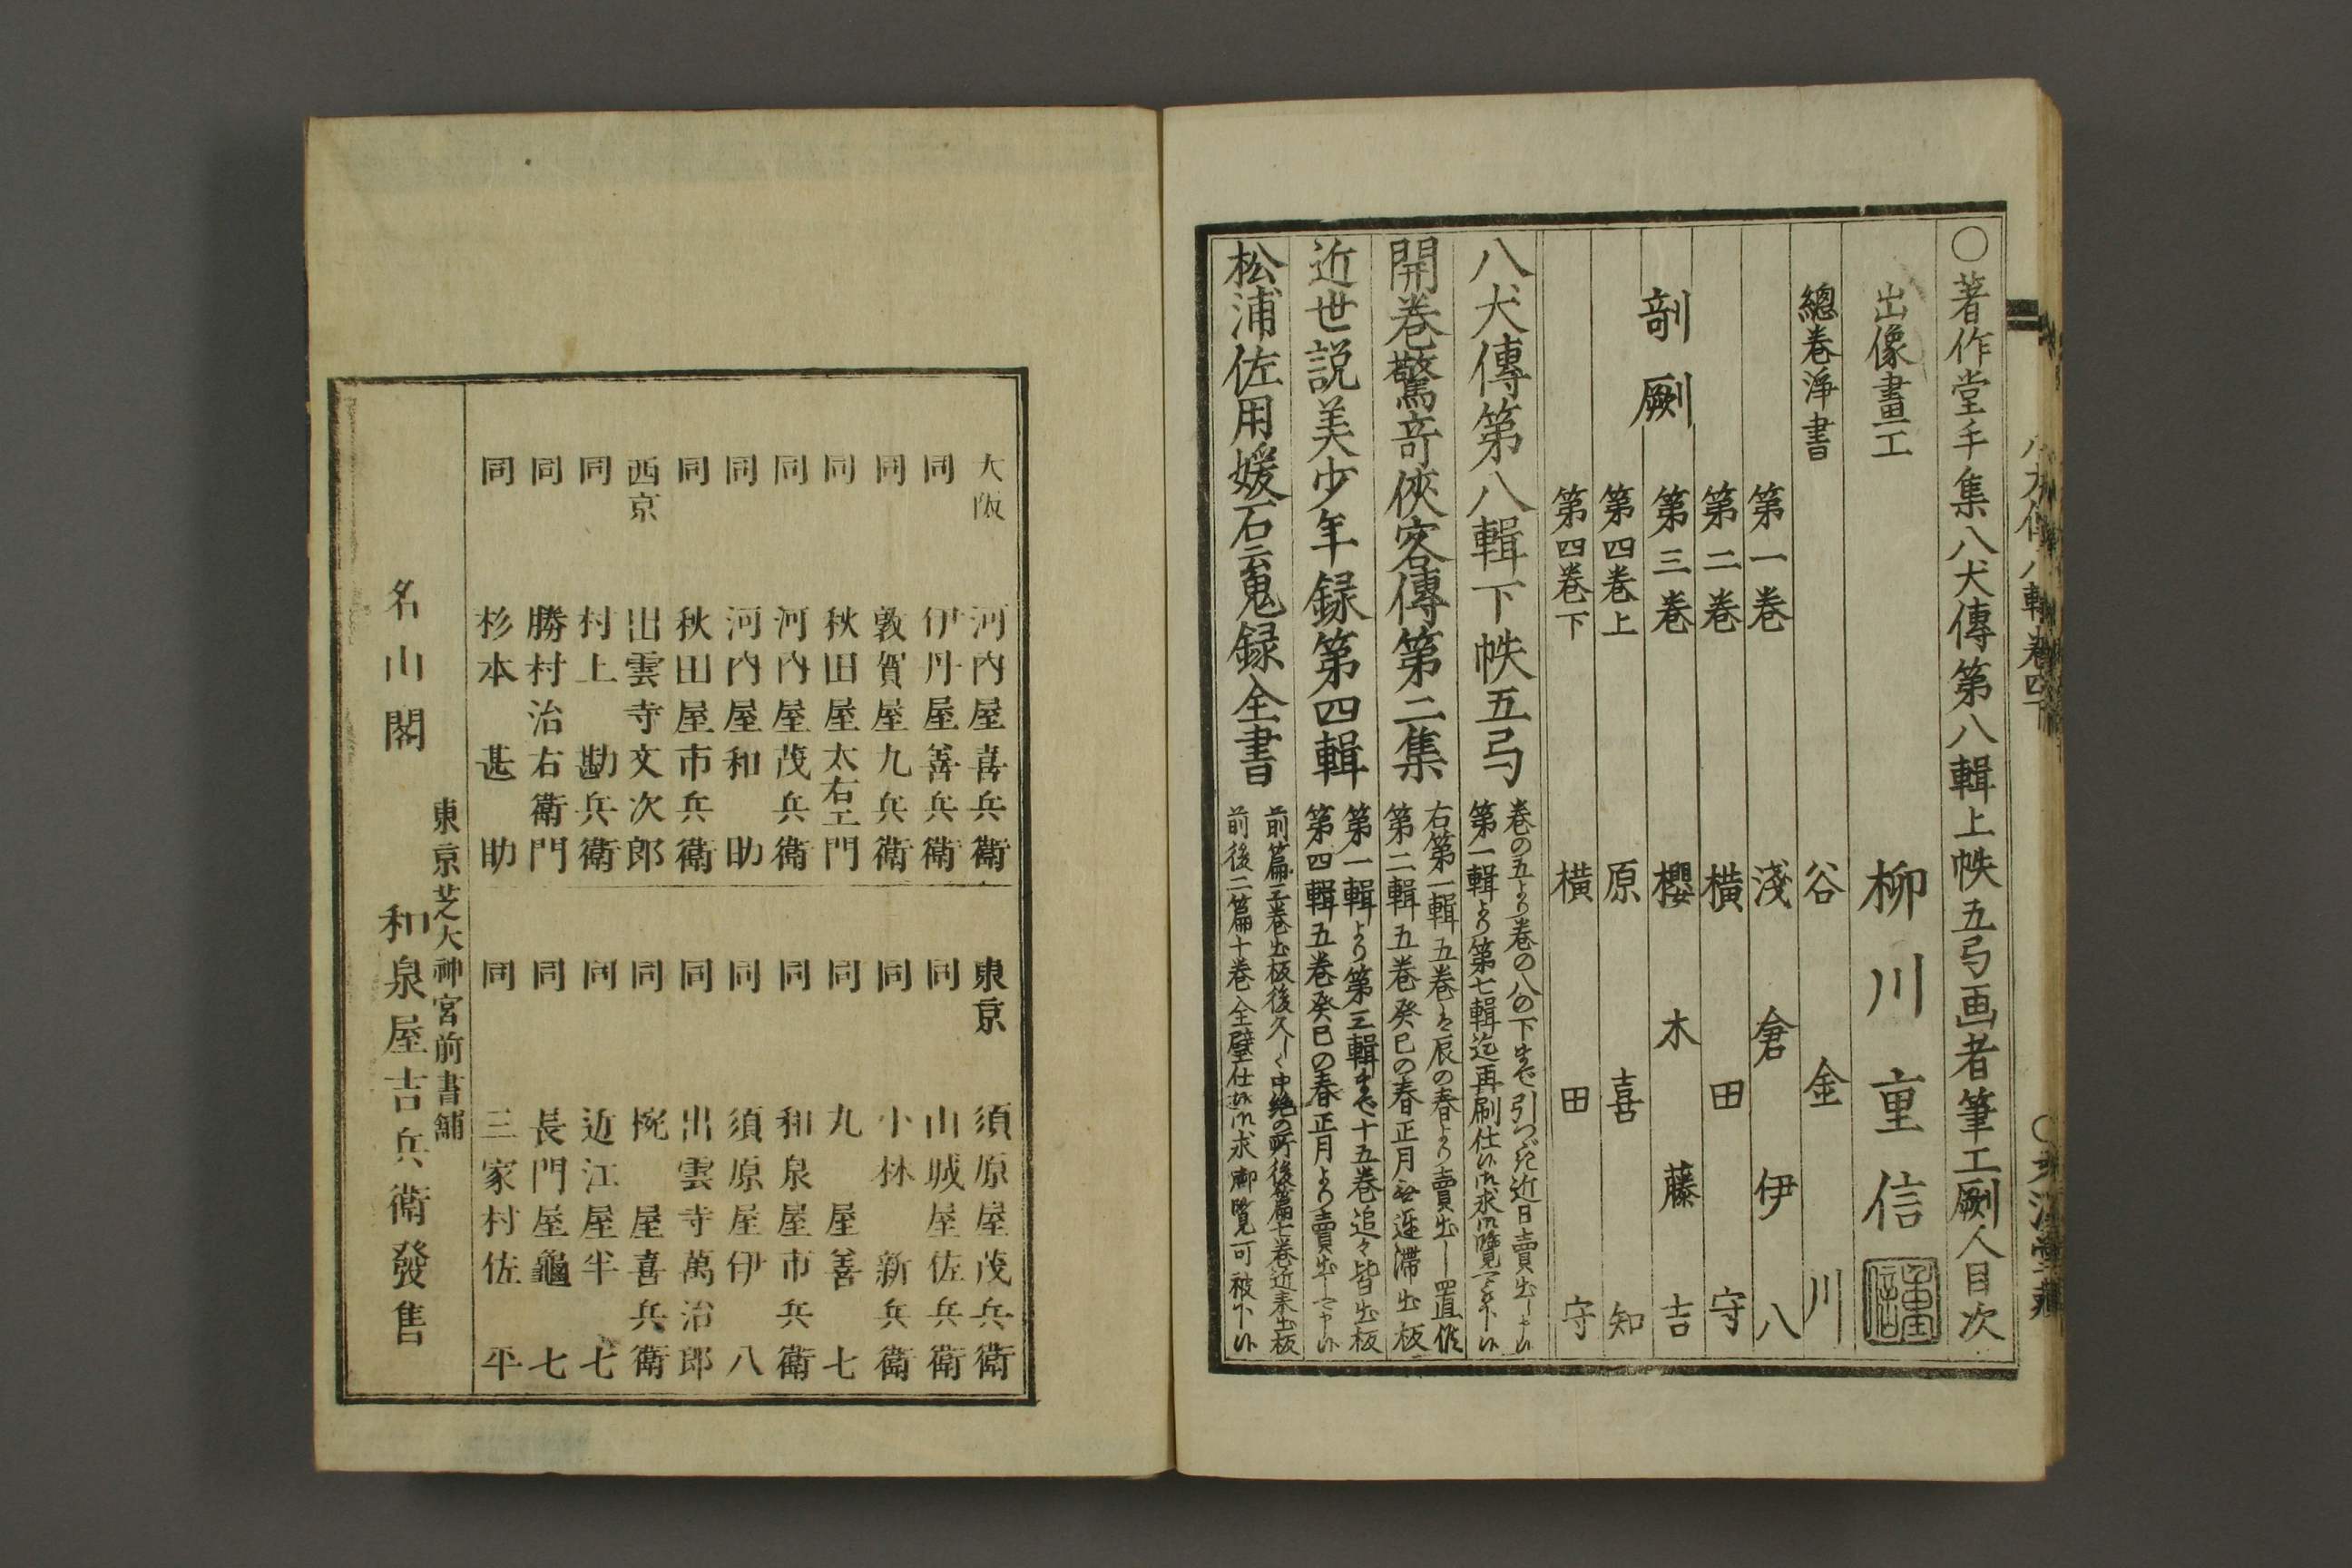 ○著作堂手集八犬傳第八輯上帙五弓画者筆工劂人目次
出像畫工　柳川重信
總巻淨書　谷金川
剞劂
第一巻　淺倉伊八
第二巻　横田守
第三巻　櫻木藤吉
第四巻上　原喜知
第四巻下　横田守
八犬傳第八輯下帙五弓
巻の五より巻の八の下まで引つゞき近日賣出し申候
第一輯より第七輯迄再刷仕候
開巻驚奇俠客傳第二集
右第一輯五巻
辰の春より賣出し置候
第二輯五巻癸巳の春正月無遅滞出板
近世説美少年録第四輯
第一輯より第三輯まで十五巻追々皆出板
第四輯五巻癸巳の春正月より賣出し申候
松浦佐用媛石魂録全書
前篇三巻出板後久しく中絶の所後篇七巻近来出板
前後二篇十巻全璧仕候御求御覧可被下候
大阪　河内屋喜兵衛
同　伊丹屋善兵衛
同　敦賀屋九兵衛
同　秋田屋太右エ門
同　河内屋茂兵衛
同　河内屋和助
同　秋田屋市兵衛
西京　出雲寺文次郎
同　村上勘兵衛
同　勝村治右衛門
同　杉本甚助
東京　須原屋茂兵衛
同　山城屋佐兵衛
同　小林新兵衛
同　丸屋善七
同　和泉屋市兵衛
同　須原屋伊八
同　出雲寺萬治郎
同　椀屋喜兵衛
同　近江屋半七
同　長門屋龜七
同　三家村佐平
東京芝大神宮前書舗
名山閣　和泉屋吉兵衛發售